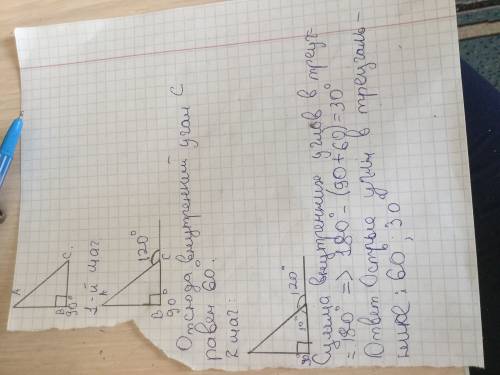 A
B
C
90°
1-й шаг
A
120°
B
C
90°
Отсюда внутренний угол C
равен 60.
2 шаг:
120°
90°
Сумма внутренних углов в треуг-
= 180° => 180° - (90+60) = 30°
Ответ Острые углы в треуголь-
нике: 60; 30